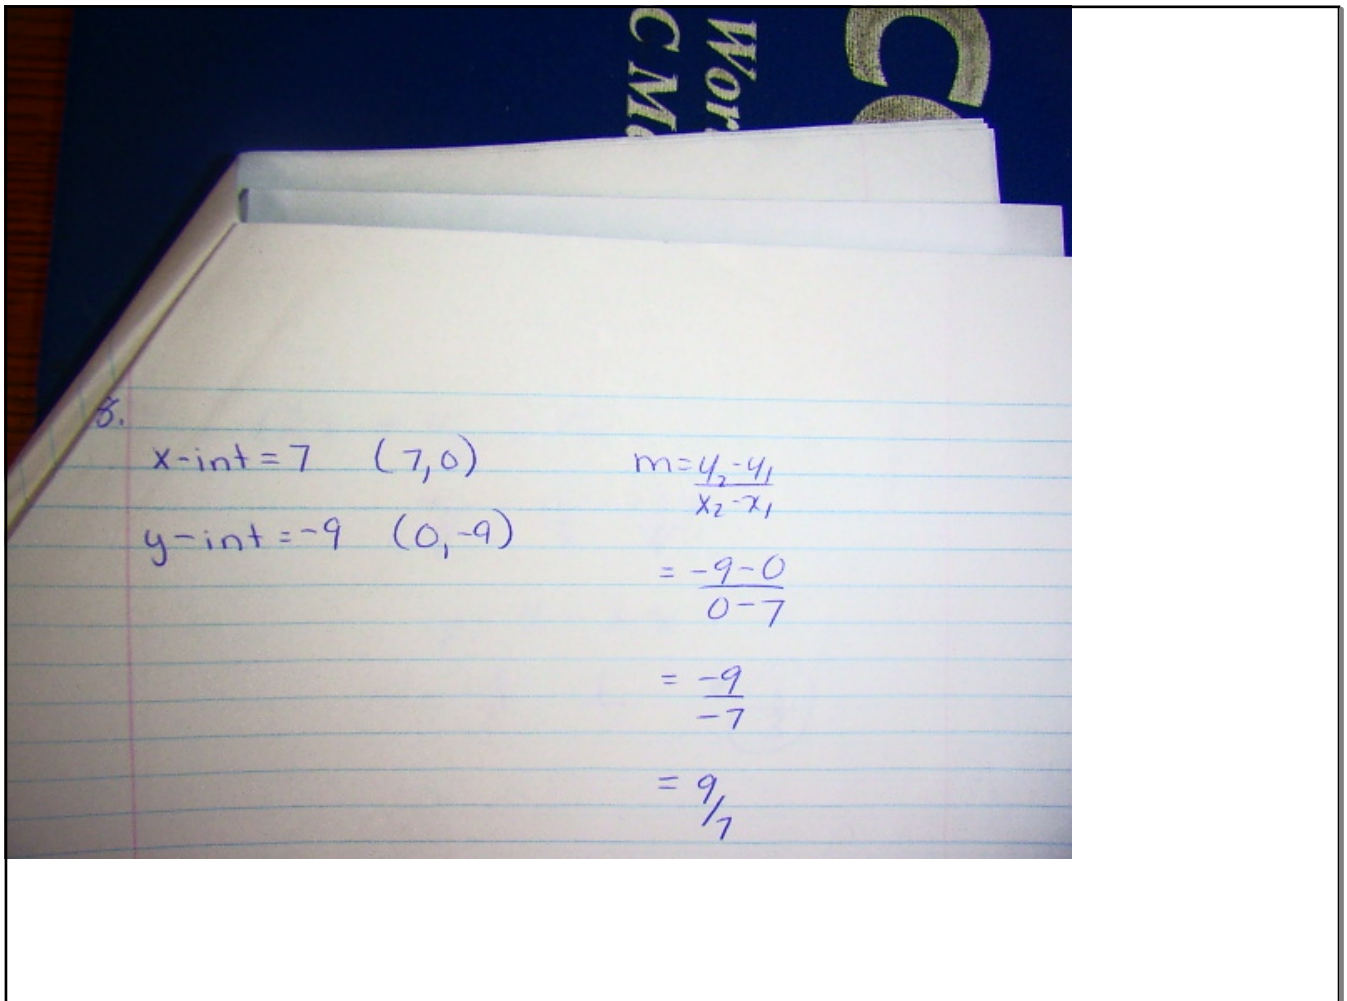 Wor
C M
8.
x-int = 7 (7,0)
y-int = -9 (0,-9)
m = y₂-y₁
x₂-x₁
= -9-0
0-7
= -9
-7
= 9/7